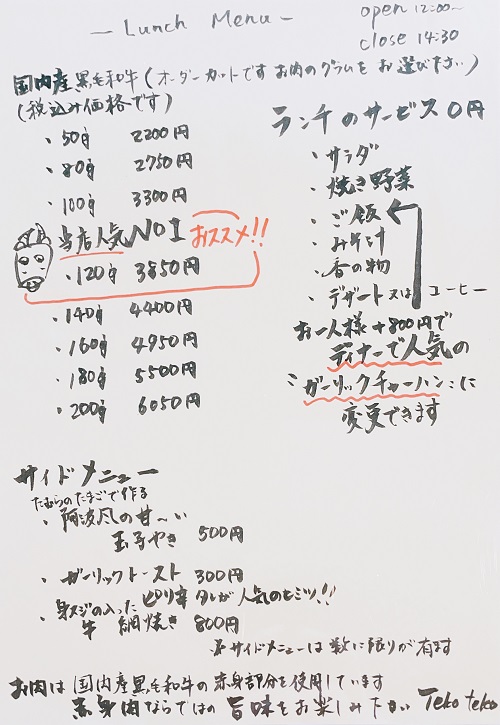 — Lunch Menu —
open 12:00~
close 14:30
国内産黒毛和牛(オーダーカットです お肉のグラムをお選び下さい)
(税込み価格です)
・50g 2200円
・80g 2750円
・100g 3300円
当店人気NO1 おススメ!!
・120g 3850円
・140g 4400円
・160g 4950円
・180g 5500円
・200g 6050円
ランチのサービス0円
・サラダ
・焼き野菜
・ご飯
・みそ汁
・香の物
・デザート又はコーヒー
お一人様+800円で
ディナーで人気の
ガーリックチャーハンに
変更できます
サイドメニュー
たむらのたまごで作る
・阿波風の甘~い
玉子やき 500円
・ガーリックトースト 300円
ピリ辛タレが人気のヒミツ!!
・スジの入った
牛 網焼き 800円
※サイドメニューは数に限りが有ます
お肉は国内産黒毛和牛の赤身部分を使用しています
赤身肉ならではの旨味をお楽しみ下さい Teko teko